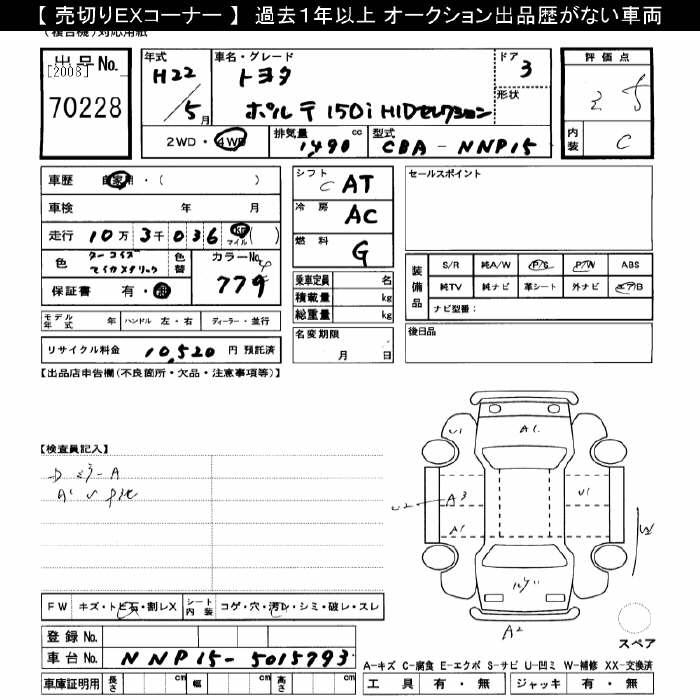 【 売切りEXコーナー 】 過去１年以上 オークション出品歴がない車両
(複合機)対応用紙
出品No.
[2008]
70228
年式
H22
/5月
車名・グレード
トヨタ
ポルテ 150i HIDセレクション
ドア
3
形状
評価点
内装
C
2WD・4WD
排気量
1490 cc
型式
CBA - NNP15
車歴 自家用・( )
車検 年 月
走行 10万3千036 Km マイル ( )
色 ターコイズマイカメタリック
色替
カラーNo.
779
保証書 有・無
モデル年式 年 ハンドル 左・右 ディーラー・並行
リサイクル料金 10,520 円 預託済
シフト
AT
冷房
AC
燃料
G
乗車定員 名
積載量 kg
総重量 kg
名変期限
月 日
セールスポイント
装備品
S/R 純A/W P/S P/W ABS
純TV 純ナビ 革シート 外ナビ エアB
ナビ型番：
後日品
【出品店申告欄(不良箇所・欠品・注意事項等)】
【検査員記入】
U1
A1
U2
A3
U1
A1
W
A2
FW キズ・トビ石・割レX シート内装 コゲ・穴・汚レ・シミ・破レ・スレ
登録No.
車台No. NNP15-5015793
車庫証明用 長さ cm 幅 cm 高さ cm
スペア
A-キズ C-腐食 E-エクボ S-サビ U-凹ミ W-補修 XX-交換済
工具 有・無 ジャッキ 有・無